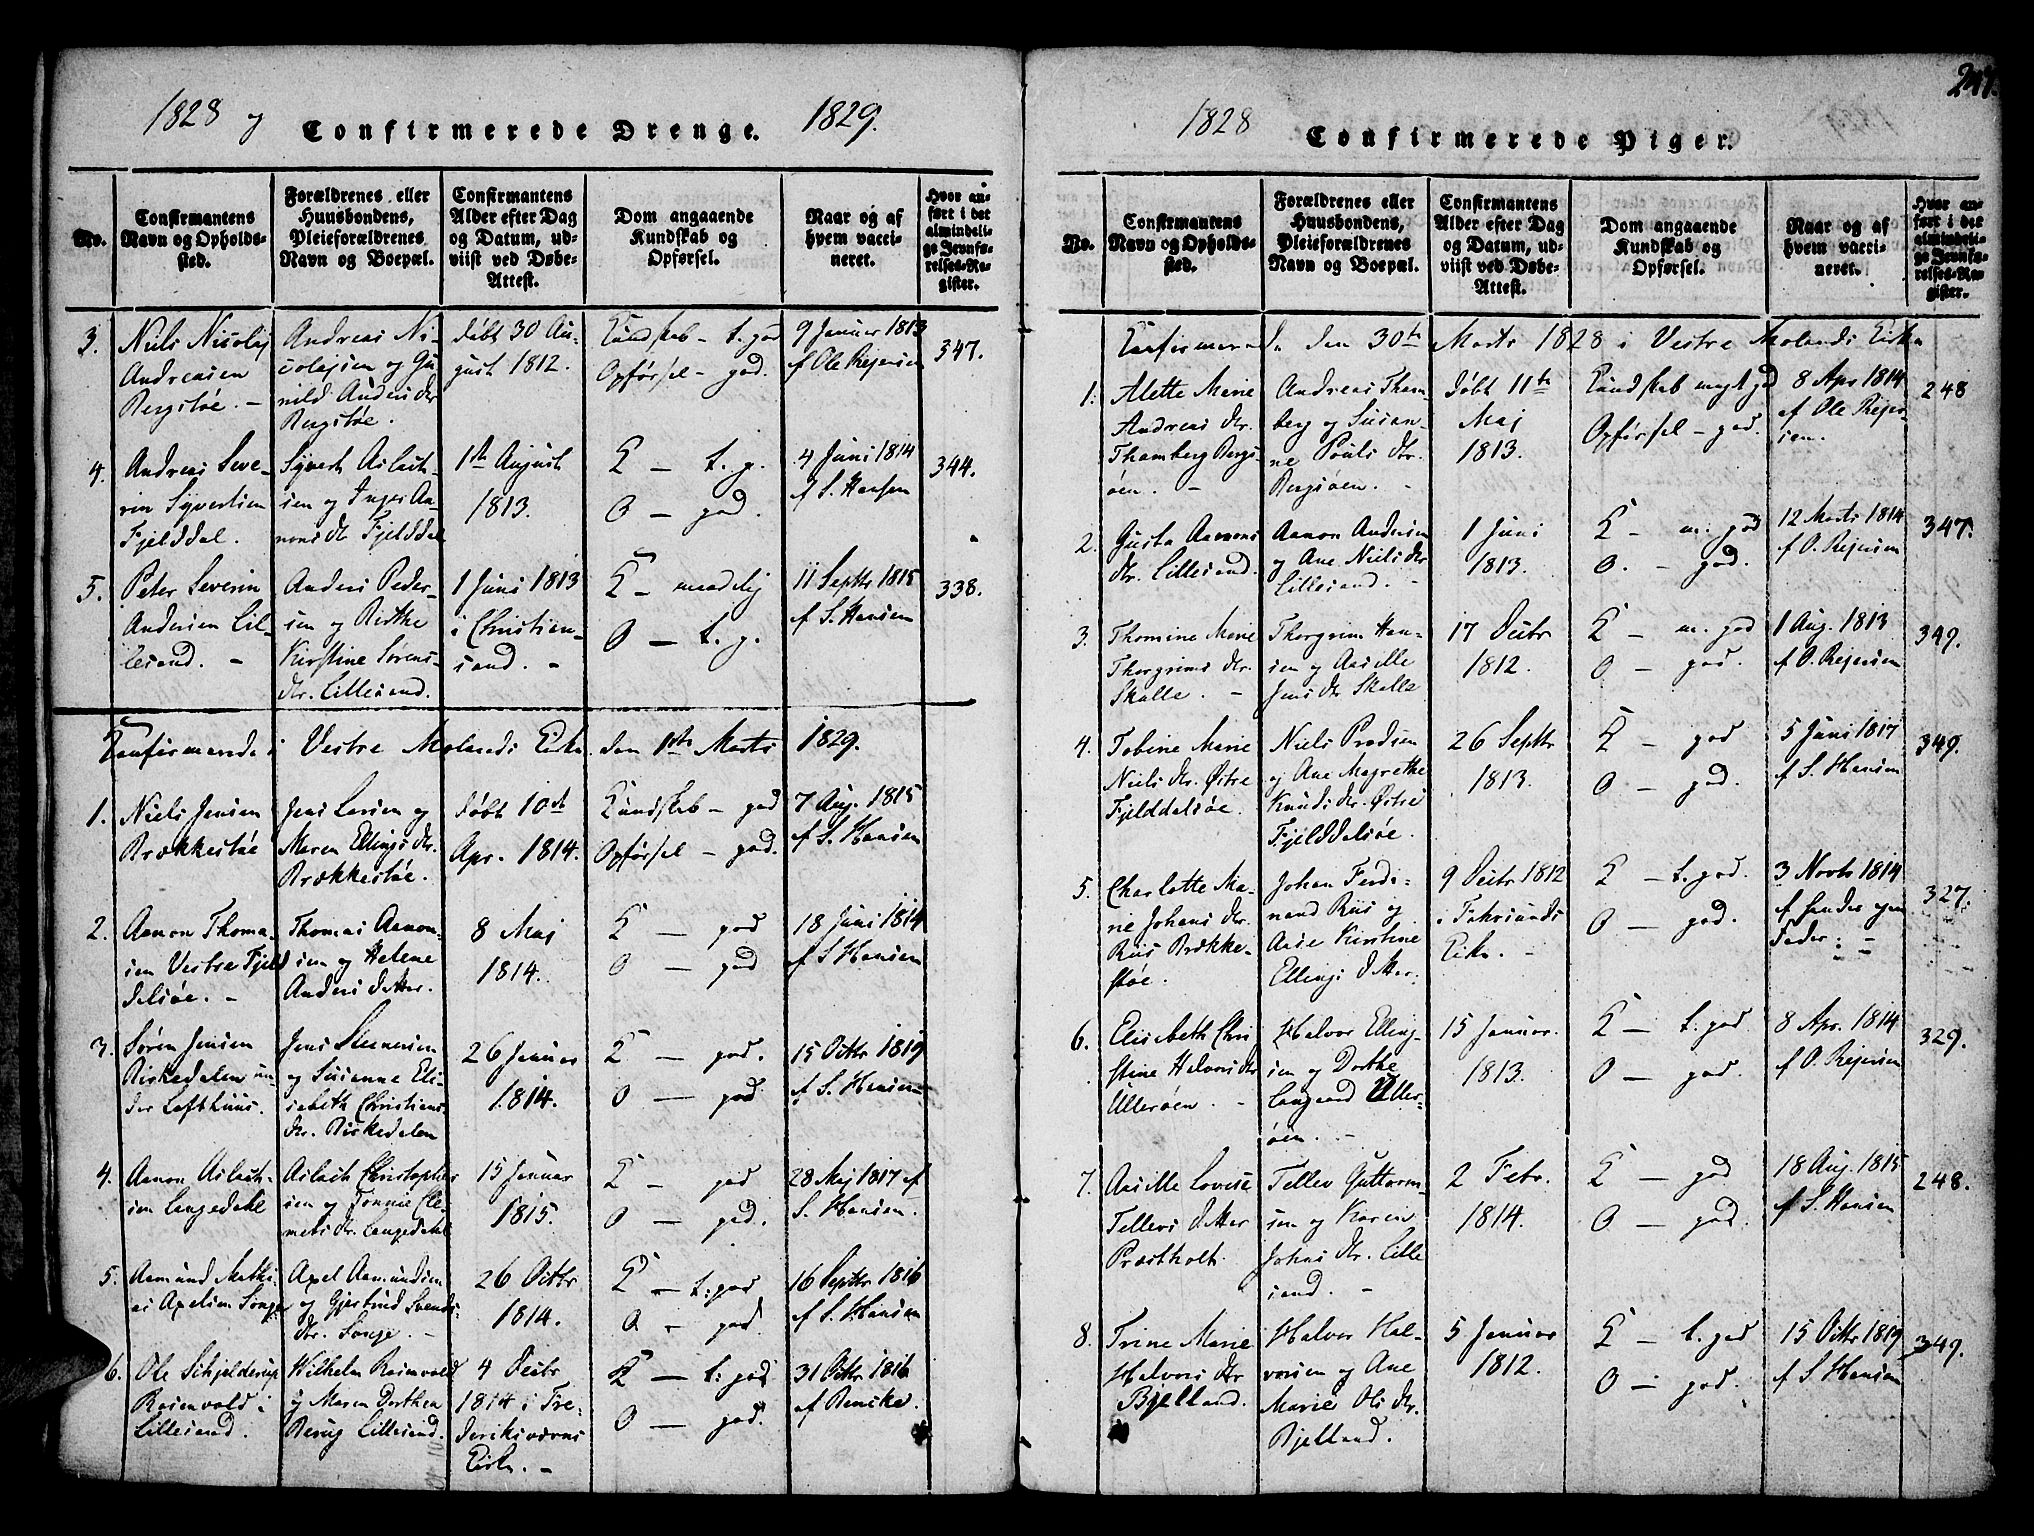 1828 og Confirmerede Drenge. 1829.
No.
Confirmantens
Navn og Opholds-
sted.
Forældrenes eller
Huusbondens,
Pleieforældrenes
Navn og Boepæl.
Confirmantens
Alder efter Dag
og Datum, ud-
viist ved Døbe-
Attest.
Dom angaaende
Kundskab og
Opførsel.
Naar og af
hvem vacci-
neret.
Hvor an-
ført i det
almindeli-
ge Jevnfø-
relses-Re-
gister.
3.
Niels Nicolaj
Andreasen
Bergstøe. -
Andreas Ni-
colajsen og Gu-
nild Anders dr
Bergstøe.
døbt 30 Au-
gust 1812.
Kundskab - t. god
Opførsel - god.
9 Januar 1813
af Ole Rejersen
347.
4.
Andreas Seve-
rin Syvertsen
Fjelddal.
Syvert Aslach-
sen og Inger Aa-
nons dr Fjelddal
1ste August
1813.
K - t. g.
O - god.
4 Juni 1814
af S. Hansen
344.
5.
Peter Severin
Andersen Lil-
lesand. -
Anders Peder-
sen og Birthe
Kirstine Sørens-
dr. Lillesand.
1 Juni 1813
i Christian-
sand. -
K - maadelig
O - t. g.
11 Septbr 1815
af S. Hansen
338.
Confirmerede i Vestre Molands Kirke den 1ste Marts 1829.
1.
Niels Jensen
Brækkestøe
Jens Larsen og
Maren Ellings dr.
Brækkestøe.
døbt 10de
Apr. 1814.
Kundskab - god
Opførsel - god.
7 Aug. 1815
af S. Hansen
2.
Aanon Thoma-
sen Vestre Fjeld
dalsøe. -
Thomas Aanon-
sen og Helene
Anders datter.
8 Maj
1814.
K - god
O - god
18 Juni 1814
af S. Hansen
3.
Søren Jensen
Birkedalen un-
der Lofthuus.
Jens Steenersen
og Susanne Eli-
sabeth Christens-
dr. Birkedalen
26 Januar
1814.
K - god.
O - god
15 Octbr 1819
af S. Hansen
4.
Aanon Aslach-
sen Langedahl
Aslach Christopher
sen og Tønnie Cle-
mets dr. Langedahl
15 Januar
1815.
K - god
O - god.
28 Maj 1817 af
S. Hansen.
5.
Aamund Mathi-
as Axelsen Songe
Axel Aamundsen
og Gjertrud Svends
dr. Songe. -
26 Octbr
1814.
K - t. god
O - god.
16 Septbr 1816
af S. Hansen
6.
Ole Schjelderup
Rosenvold i
Lillesand.
Wilhelm Rosenvold
og Maren Dorthea
Berug Lillesand.
4 Decbr
1814 i Fre-
deriksværns
Kirke. -
K - t. god
O - god.
31 Octbr 1816
af Benicke.
247.
1828 Confirmerede Piger.
No.
Confirmantens
Navn og Opholds-
sted.
Forældrenes eller
Huusbondens,
Pleieforældrenes
Navn og Boepæl.
Confirmantens
Alder efter Dag
og Datum, ud-
viist ved Døbe-
Attest.
Dom angaaende
Kundskab og
Opførsel.
Naar og af
hvem vacci-
neret.
Hvor an-
ført i det
almindeli-
ge Jevnfø-
relses-Re-
gister.
Confirmerede den 30te Marts 1828 i Vestre Molands Kirke
1.
Alette Marie
Andreas dr.
Thamberg Bergs-
øen. -
Andreas Tham-
berg og Susan-
ne Pouls dr.
Bergsøen. -
døbt 11te
Maj
1813.
Kundskab meget god
Opførsel - god.
8 Apr 1814
af Ole Rejer-
sen.
248
2.
Gusta Aanons
dr. Lillesand.
Aanon Andersen
og Ane Niels dr
Lillesand. -
1 Juni
1813.
K - m. god
O. - god.
12 Marts 1814
af O. Rejersen
347.
3.
Thomine Marie
Thorgrims dr.
Skalle. -
Thorgrim Han-
sen og Aasille
Jens dr Skalle
17 Decbr
1812.
K - m. god
O - god.
1 Aug. 1813
af O. Rejersen
349.
4.
Tobine Marie
Niels dr. Østre
Fjelddalsøe.
Niels Bredsen
og Ane Magrethe
Knuds dr. Østre
Fjelddalsøe.
26 Septbr
1813.
K - god
O - god.
5 Juni 1817
af S. Hansen
349.
5.
Charlotte Ma-
rie Johans dr.
Riis Brække-
støe.
Johan Ferdi-
nand Riis og
Aase Kirstine
Ellings datter.
9 Decbr 1812
i Fahrsunds
Kirke. -
K - t. god.
O - god.
3 Novbr 1814
af hendes egen
Fader. -
327.
6.
Elisabeth Chri
stine Halvors dr
Ullerøen. -
Halvor Elling-
sen og Dorthe
Langaard Uller-
øen. -
15 Januar.
1813.
K - t. god
O - god.
8 Apr. 1814
af O. Rejersen
329.
7.
Aasille Lovise
Tellevs datter
Præstholt.
Tellev Guttorm-
sen og Karen
Johns dr. Lille
sand. -
2 Febr.
1814.
K - god
O - god.
18 Aug. 1815
af S. Hansen
248.
8.
Trine Marie
Halvors dr
Bjelland.
Halvor Hal-
vorsen og Ane
Marie Ols dr.
Bjelland.
5 Januar
1812.
K - t. god
O - god.
15 Octbr 1819
af S. Hansen
349.